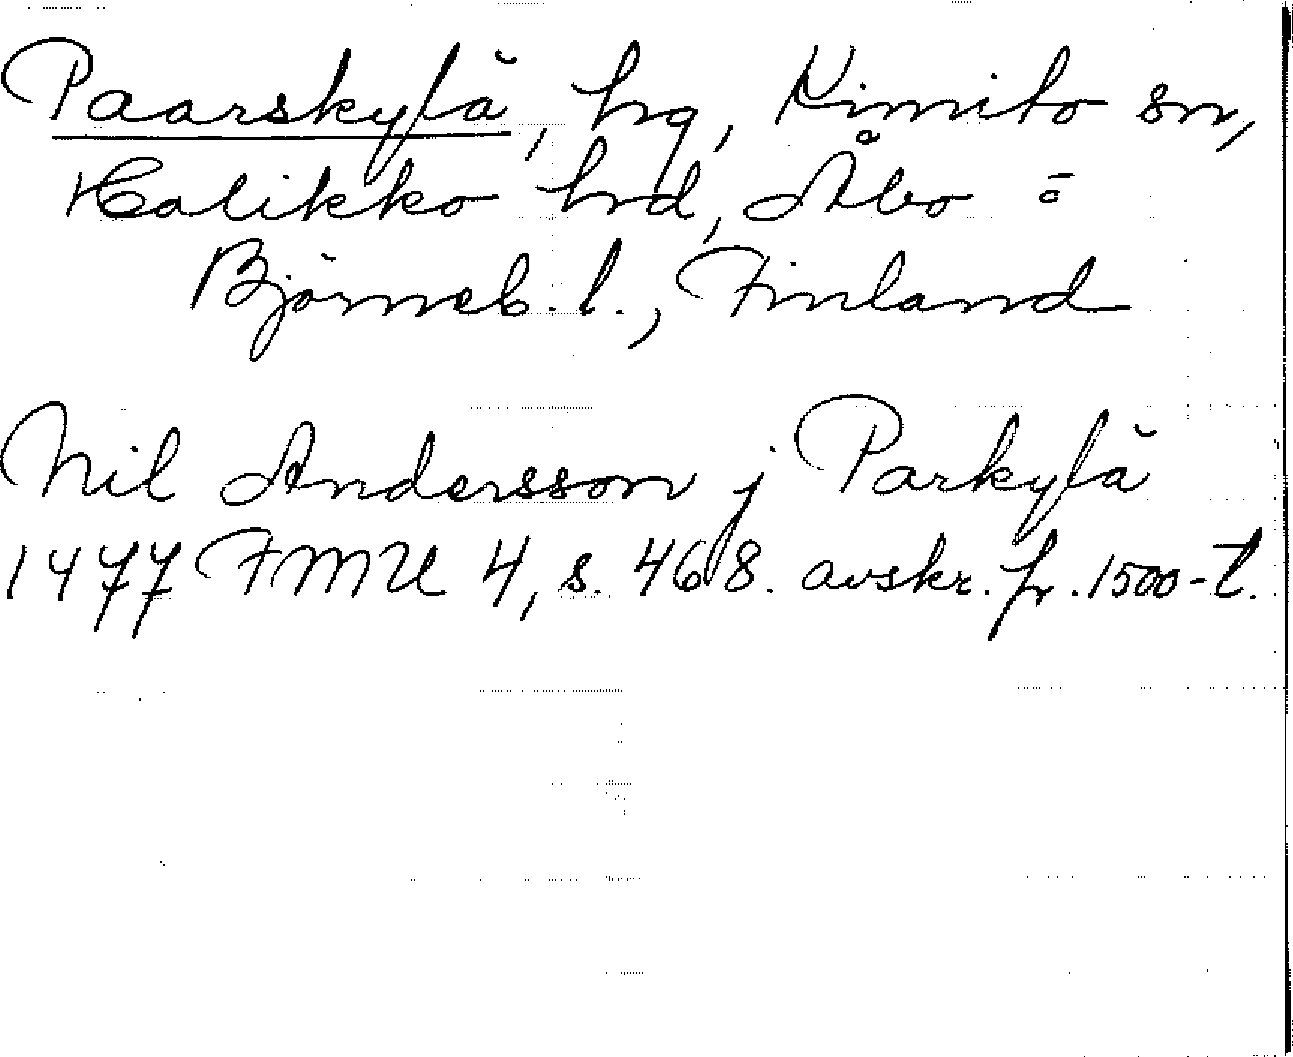 Paarskylä, hg, Kimito sn,
Halikko hrd, Åbo o
Björneb. l., Finland
Nil Andersson j Parkylä
1477 FMU 4, s. 468. avskr. fr. 1500-t.